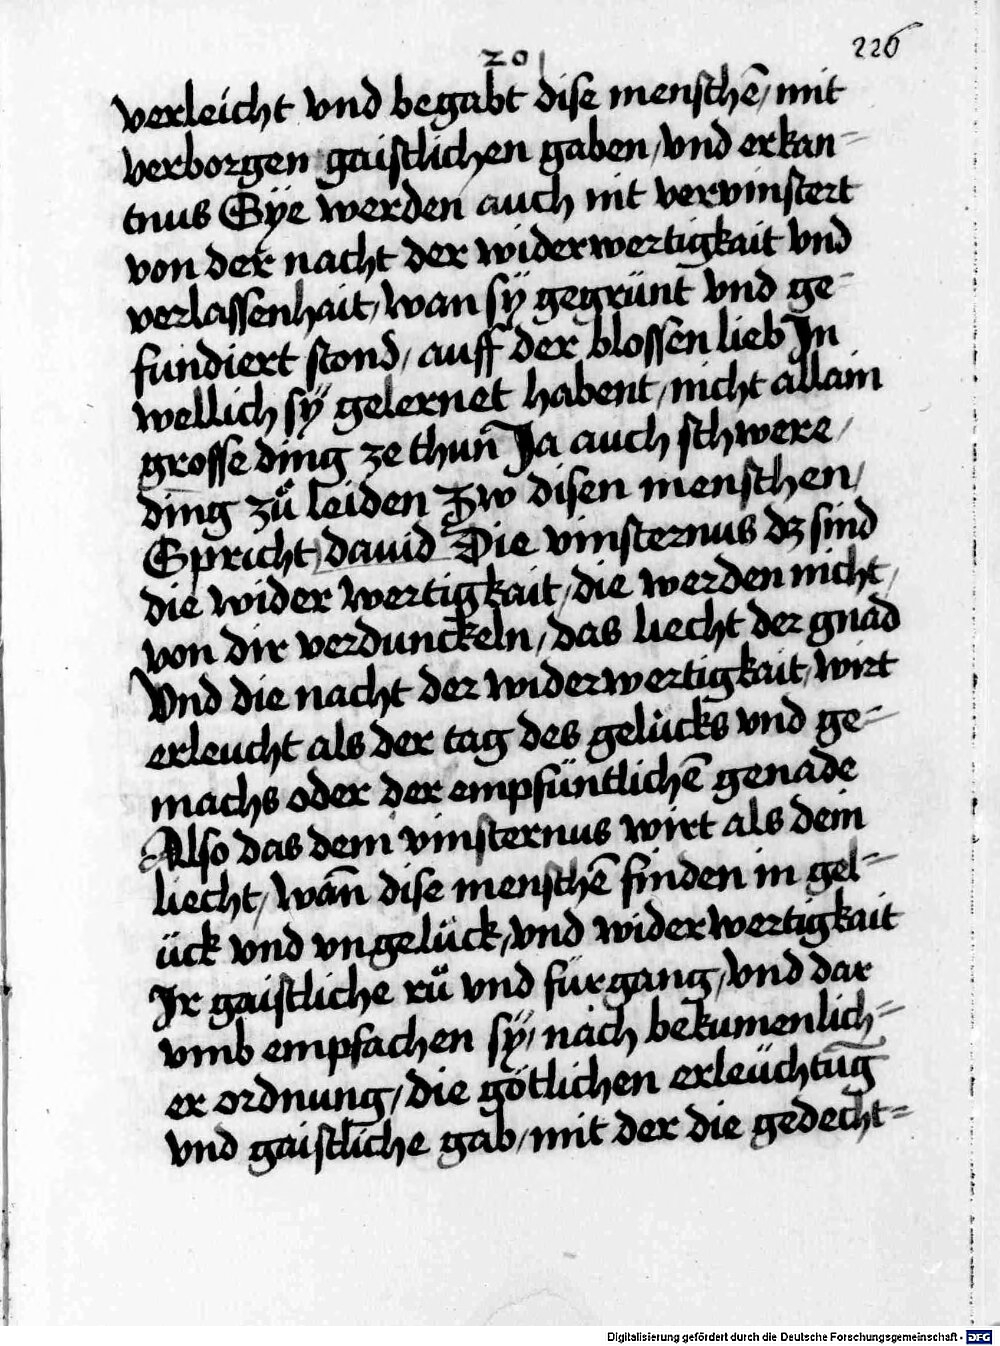 20
226
verleicht vnd begabt dise menschē / mit
verborgen gaistlichen gaben / vnd erkan=
tnus Sÿe werden auch nit vervinstert
von der nacht der widerwertigkait vnd
verlassenhait / wan sÿ gegrünt vnd ge=
fundiert stond / auff der blossen lieb In
wellich sÿ gelernet habent / nicht allain
grosse ding ze thun Ja auch schwere /
ding zů leiden Zw disen menschen /
Spricht dauid Die vinsternus dz sind
die wider wertigkait / die werden nicht /
von dir verdunckeln / das liecht der gnad
Vnd die nacht der widerwertigkait / wirt
erleucht als der tag des gelücks vnd ge=
machs oder der empfüntlichē genade
Also das dem vinsternus wirt als dein
liecht / wañ dise menschē finden in gel=
ück vnd vngelück / vnd widerwertigkait
Ir gaistliche rů vnd fürgang / vnd dar
vmb empfachen sÿ / nach bekumenlich=
er ordnung / die götlichen erleüchtūg
vnd gaistliche gab / mit der die gedecht=
Digitalisierung gefördert durch die Deutsche Forschungsgemeinschaft - DFG